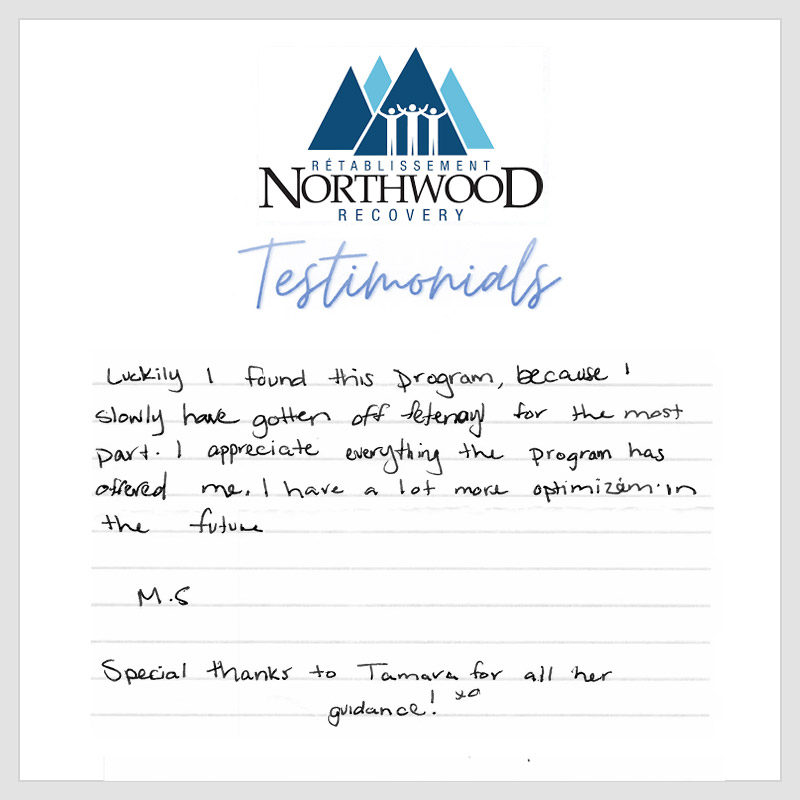 RÉTABLISSEMENT
NORTHWOOD
RECOVERY
Testimonials
Luckily I found this program, because I
slowly have gotten off fetenayl for the most
part. I appreciate everything the program has
offered me. I have a lot more optimizém in
the future
M.S
Special thanks to Tamara for all her
guidance! xo